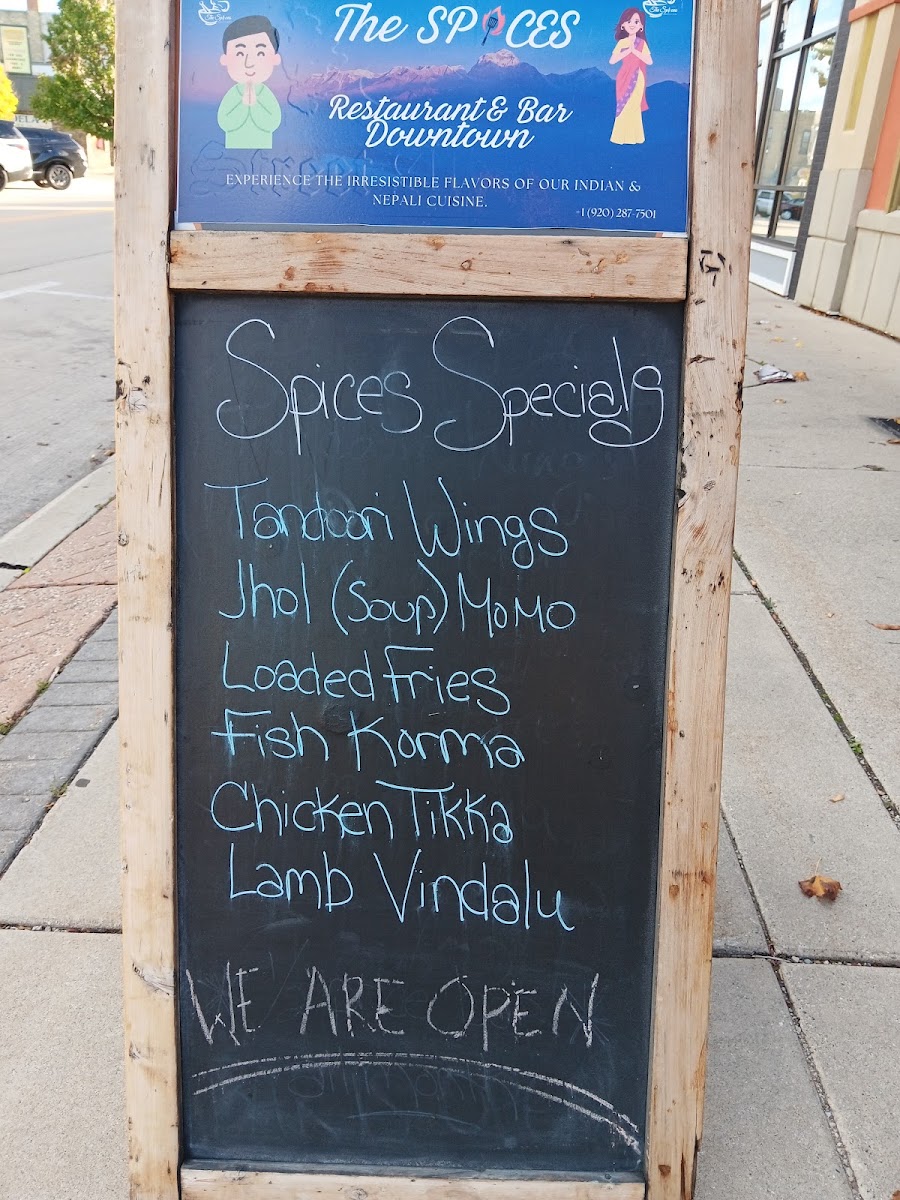 The SPICES
Restaurant & Bar
Downtown
EXPERIENCE THE IRRESISTIBLE FLAVORS OF OUR INDIAN &
NEPALI CUISINE.
+1 (920) 287-7501
Spices Specials
Tandoori Wings
Jhol (Soup) MoMo
Loaded Fries
Fish Korma
Chicken Tikka
Lamb Vindalu
WE ARE OPEN